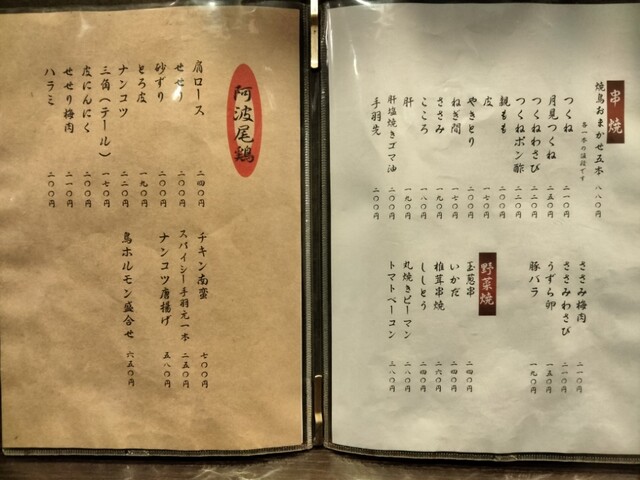 串焼
焼鳥おまかせ五本 八八〇円
各一本の値段です
つくね 二一〇円
月見つくね 二五〇円
つくねわさび 二二〇円
つくねポン酢 二二〇円
親もも 二〇〇円
皮 一七〇円
やきとり 二〇〇円
ねぎ間 一七〇円
ささみ 一九〇円
こころ 一八〇円
肝 一九〇円
肝塩焼きゴマ油 二〇〇円
手羽先 二〇〇円
ささみ梅肉 二一〇円
ささみわさび 二一〇円
うずら卵 一五〇円
豚バラ 一九〇円
野菜焼
玉葱串 二四〇円
いかだ 二四〇円
椎茸串焼 二六〇円
ししとう 二四〇円
丸焼きピーマン 二八〇円
トマトベーコン 二八〇円
阿波尾鶏
肩ロース 二四〇円
せせり 二〇〇円
砂ずり 二〇〇円
とろ皮 一九〇円
ナンコツ 二二〇円
三角(テール) 一七〇円
皮にんにく 二〇〇円
せせり梅肉 二一〇円
ハラミ 二〇〇円
チキン南蛮 七〇〇円
スパイシー手羽元一本 二五〇円
ナンコツ唐揚げ 五八〇円
鳥ホルモン盛合せ 六五〇円